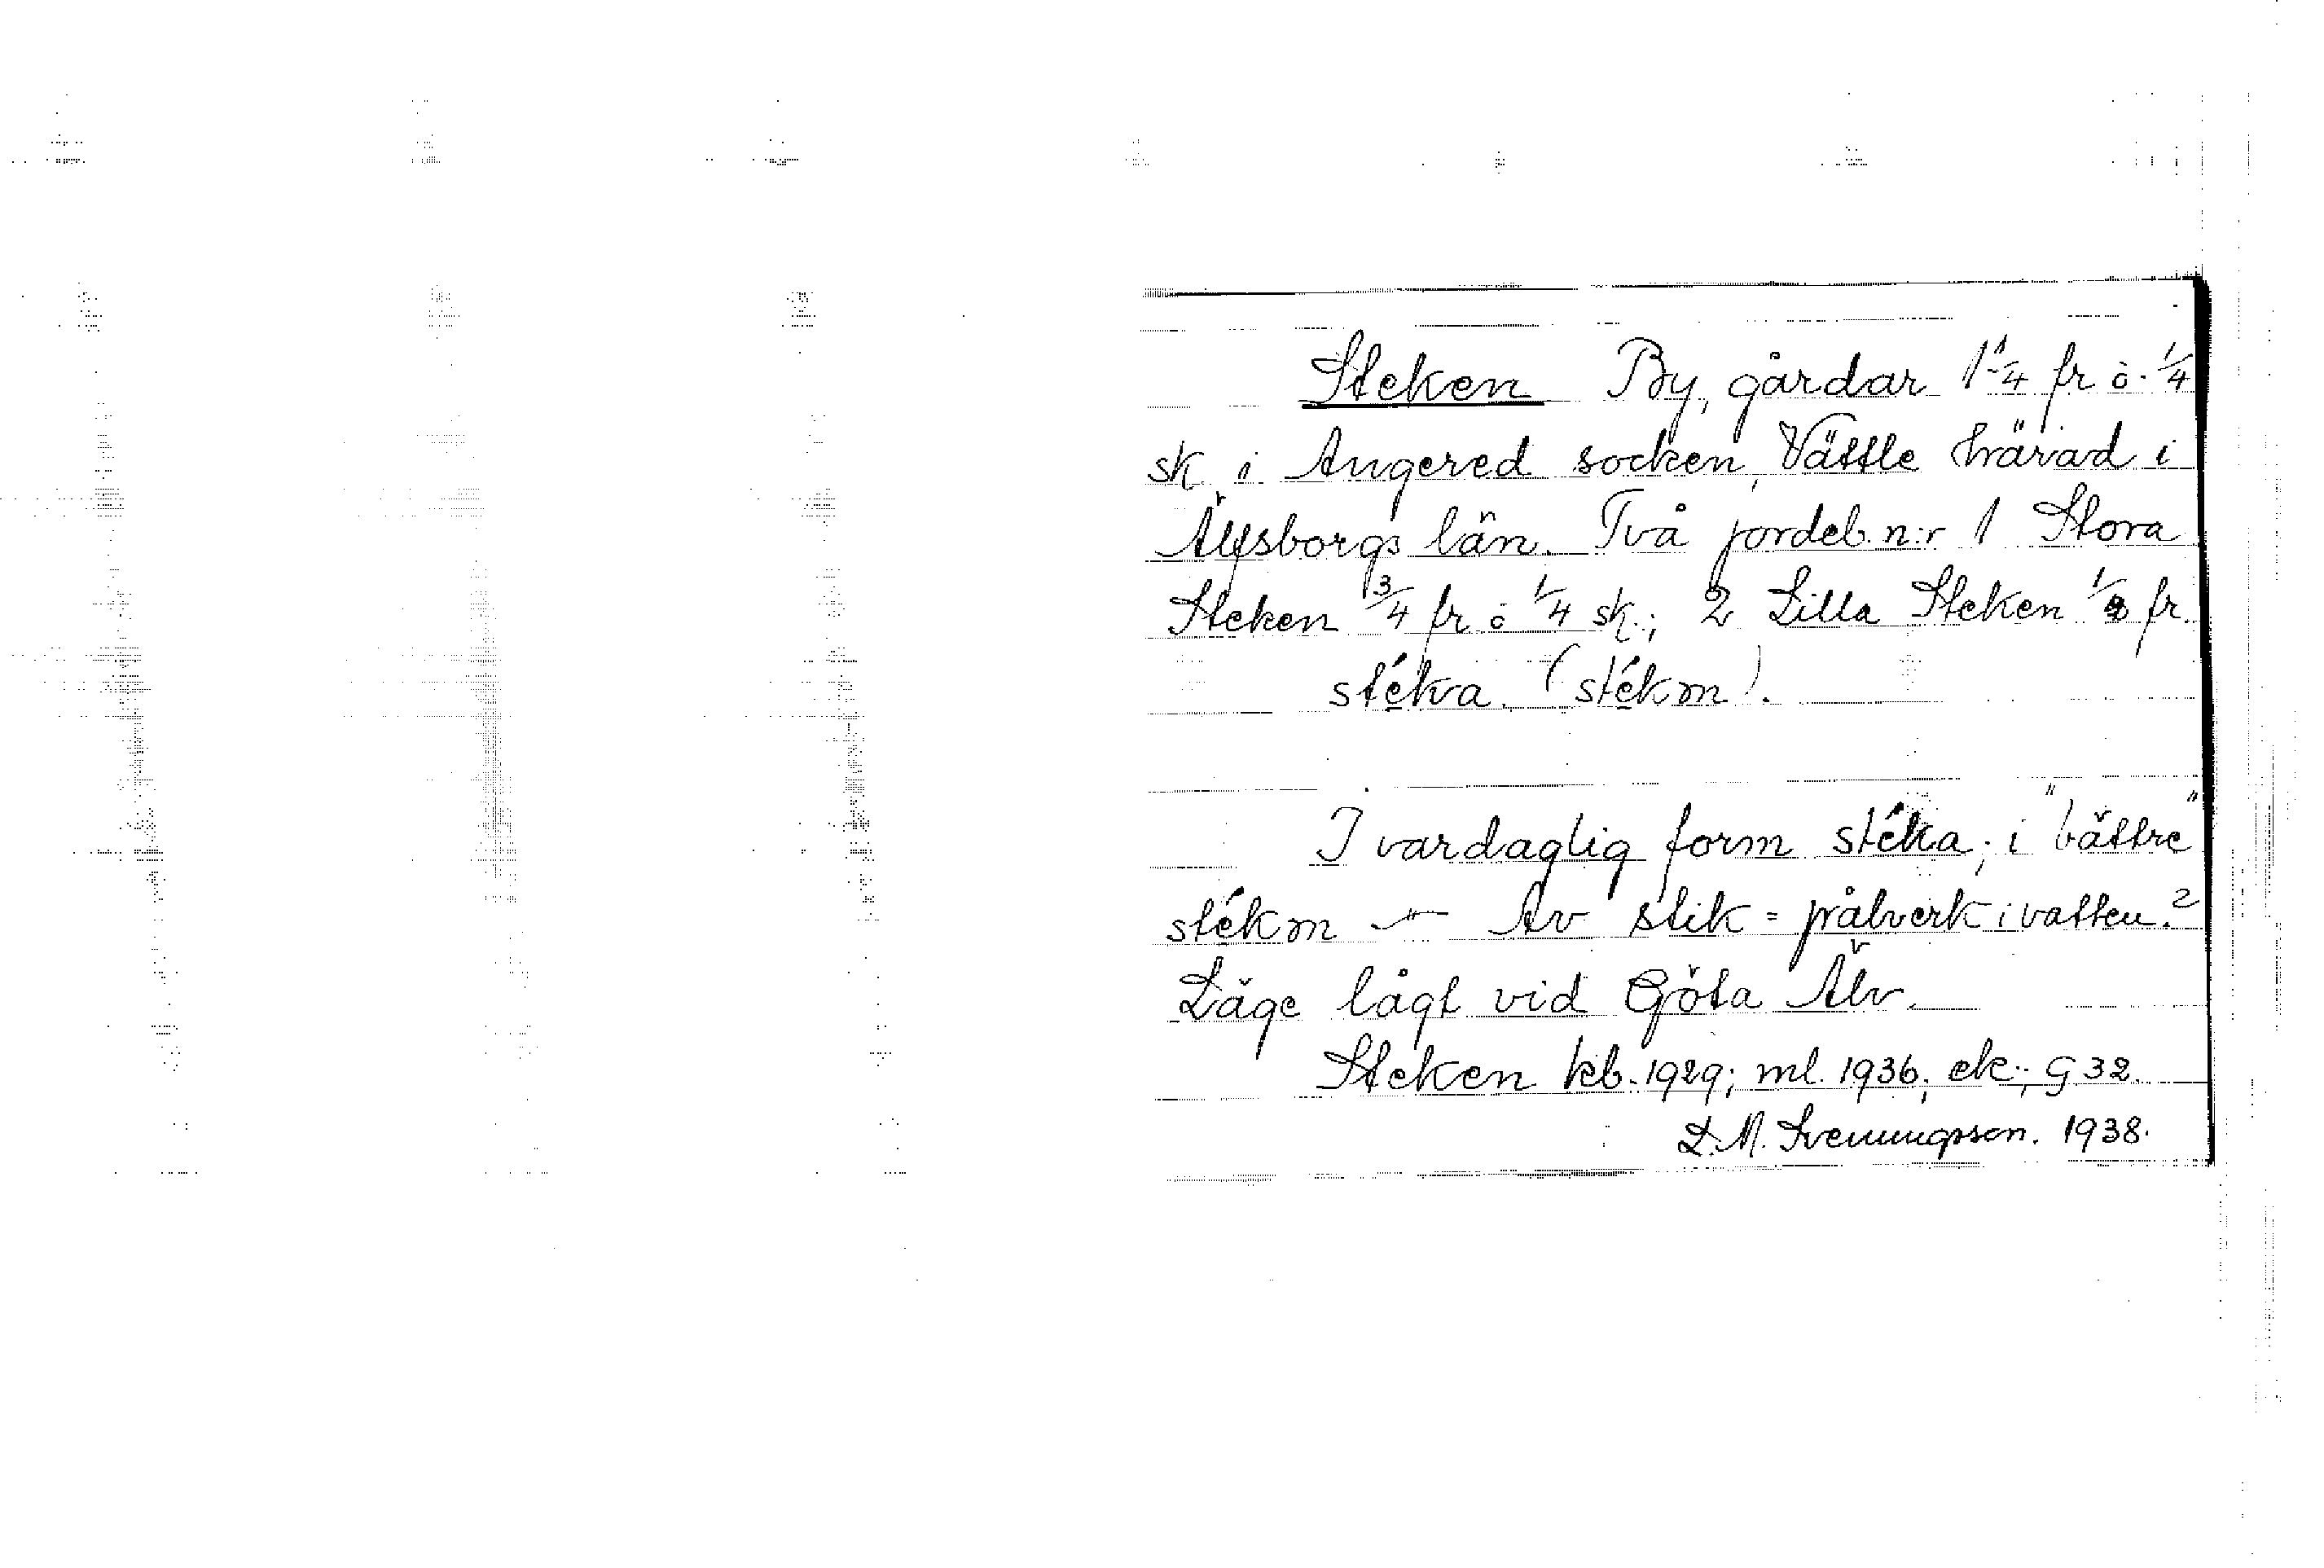 Steken By, gårdar 1 1/4 fr o. 1/4
sk. i Angered socken, Vättle härad i
Älfsborgs län. Två jordeb. n:r 1 Stora
Steken 3/4 fr o 1/4 sk.; 2 Lilla Steken 1/2 fr.
stéka. (stékm).
I vardaglig form stéka; i "bättre"
stékm — Av stik = pålverk i vatten?
Läge lågt vid Göta Älv.
Steken kb. 1929; ml. 1936; ek.; G 32.
L. M. Svenungsson. 1938.